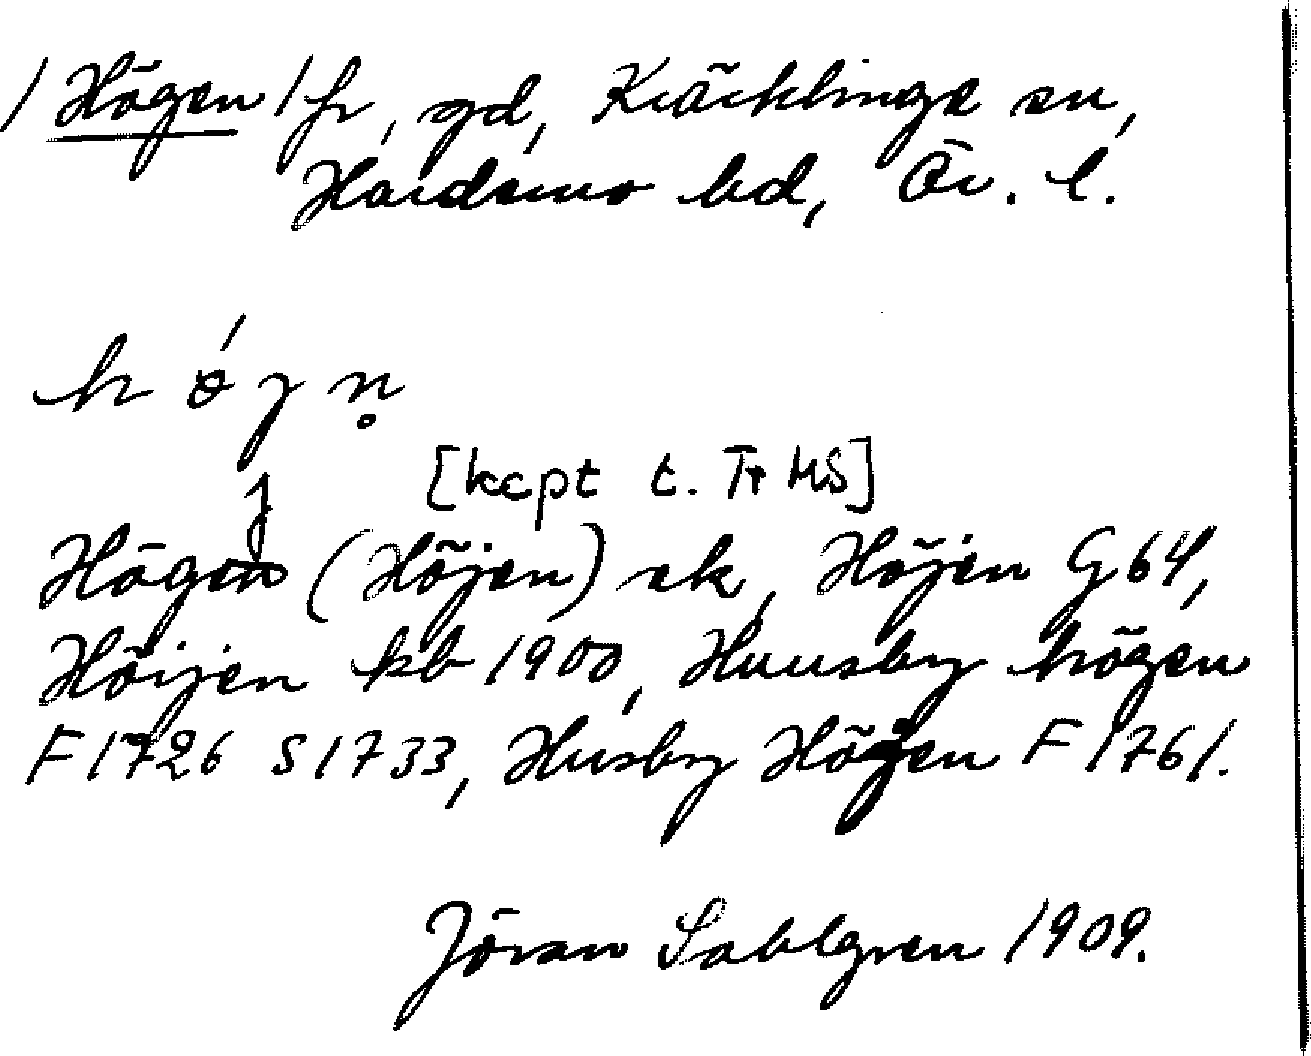 / Högen / fr, gd, Kräcklinge sn,
Hardemo hd, Ör. l.
h ǿ j n̥
j [kcpt t. Tr HS]
Högen (Höjen) ek, Höjen G 64,
Höijen kb 1900, Huusby högen
F 1726 S 1733, Husby Högen F 1761.
Jöran Sahlgren 1909.